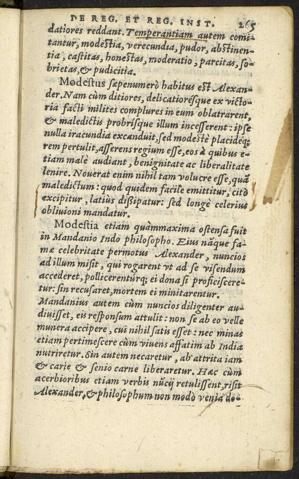 DE REG. ET REG. INST. 265
datiores reddant. Temperantiam autem comi-
tantur, modestia, verecundia, pudor, abstinen-
tia, castitas, honestas, moderatio, parcitas, so-
brietas, & pudicitia.
Modestus sæpenumerò habitus est Alexan-
der. Nam cùm ditiores, delicatioresque ex victo-
ria facti milites complures in eum oblatrarent,
& maledictis probrisque illum incesserent: ipse
nulla iracundia excanduit, sed modestè placideq;
rem pertulit, asserens regium esse, eos à quibus e-
tiam malè audiant, benignitate ac liberalitate
lenire. Nouerat enim nihil tam volucre esse, quā
maledictum: quod quidem facilè emittitur, citò
excipitur, latiùs dißipatur: sed longè celeriùs
obliuioni mandatur.
Modestia etiam quàmmaxima ostensa fuit
in Mandanio Indo philosopho. Eius nāque fa-
mæ celebritate permotus Alexander, nuncios
ad illum misit, qui rogarent vt ad se visendum
accederet, pollicerenturq; ei dona si proficiscere-
tur: sin recusaret, mortem ei minitarentur.
Mandanius autem cùm nuncios diligenter au-
diuisset, eis responsum attulit: non se ab eo velle
munera accipere, cui nihil satis esset: nec minas
etiam pertimescere cùm viuens affatim ab India
nutriretur. Sin autem necaretur, ab attrita iam
& carie & senio carne liberaretur. Hæc cùm
acerbioribus etiam verbis nūcij retulissent, risit
Alexander, & philosophum non modò venia do-